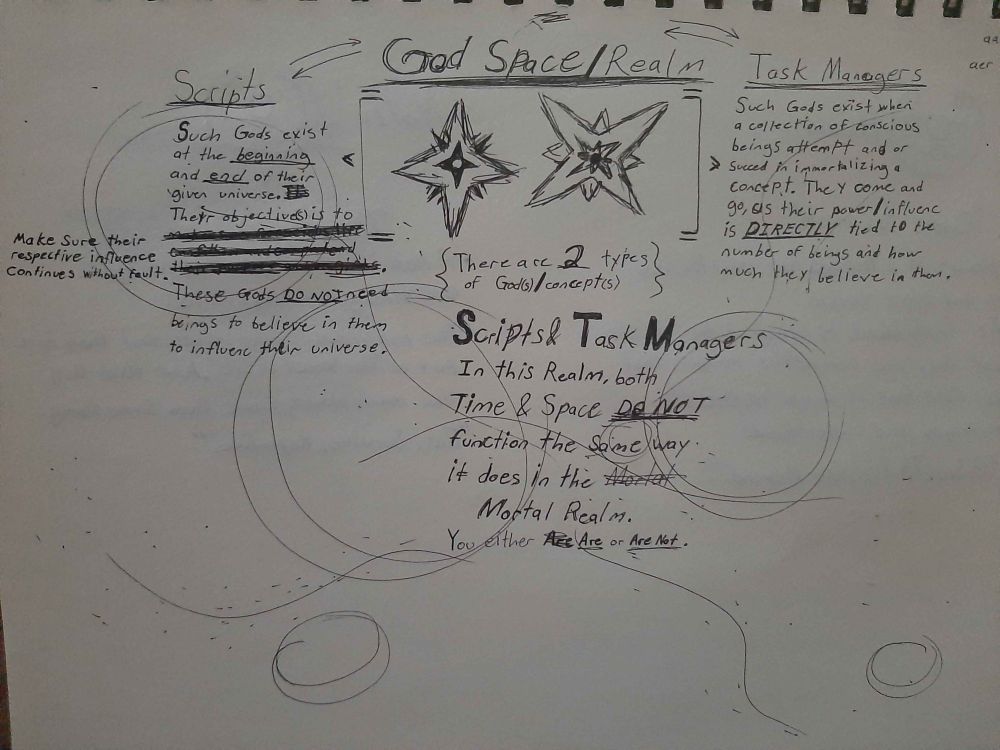 God Space/Realm
Scripts
Such Gods exist
at the beginning
and end of their
given universe.
Their objective(s) is to
Make Sure their
respective influence
Continues without fault.
These Gods DO NOT need
beings to believe in them
to influenc their universe.
There are 2 types
of God(s)/concept(s)
Scripts & Task Managers
In this Realm, both
Time & Space DO NOT
function the Same way
it does in the Mortal
Mortal Realm.
You either Are Are or Are Not.
Task Managers
Such Gods exist when
a collection of conscious
beings attempt and or
succed in immortalizing a
concept. They come and
go, as their power/influenc
is DIRECTLY tied to the
number of beings and how
much they believe in them.
aer